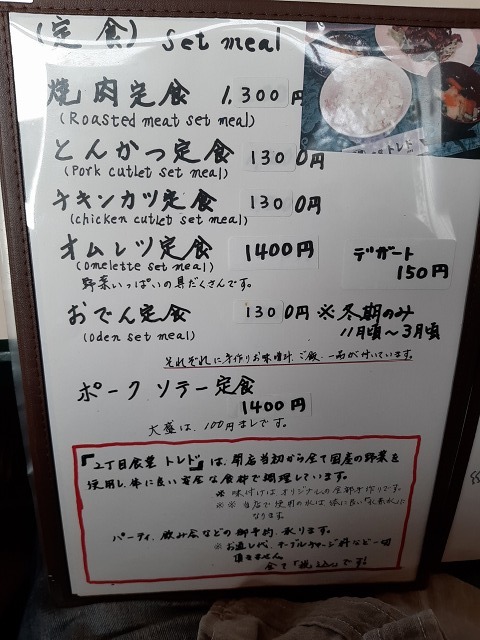 (定食) Set meal
焼肉定食 1,300円
(Roasted meat set meal)
とんかつ定食 1300円
(Pork cutlet set meal)
チキンカツ定食 1300円
(chicken cutlet set meal)
オムレツ定食 1400円
(omelette set meal)
野菜いっぱいの具だくさんです。
デザート
150円
おでん定食 1300円 ※冬期のみ
(oden set meal) 11月頃～3月頃
それぞれに手作りお味噌汁、ご飯、一品が付いています。
ポークソテー定食
1400円
大盛は、100円ましです。
『2丁目食堂トレド』は、開店当初から全て国産の野菜を
使用し、体に良い安全な食材で調理しています。
※ 味付けはオリジナルの全部手作りです。
※※ 当店で使用の水は体に良い「水素水」に
なります。
パーティ、飲み会などの御予約、承ります。
※お通し代、テーブルチャージ料など一切
頂きません
全て「税込」です!